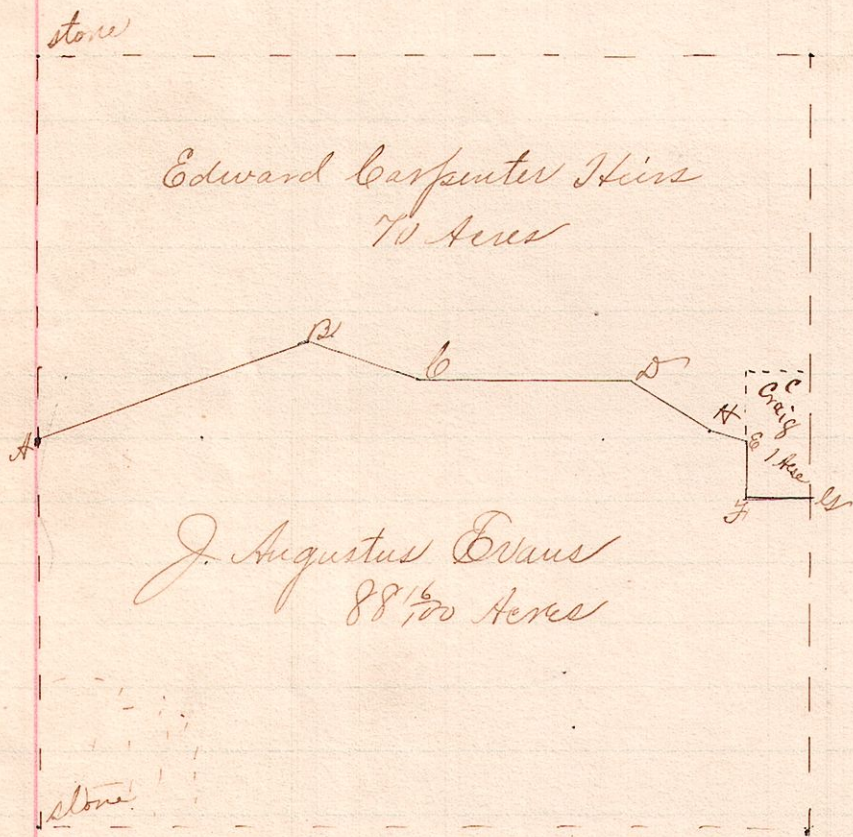 stone
Edward Carpenter Heirs
70 Acres
B
C
D
H
C
Craig
E
1 Acre
A
F
G
J. Augustus Evans
88 16/100 Acres
stone